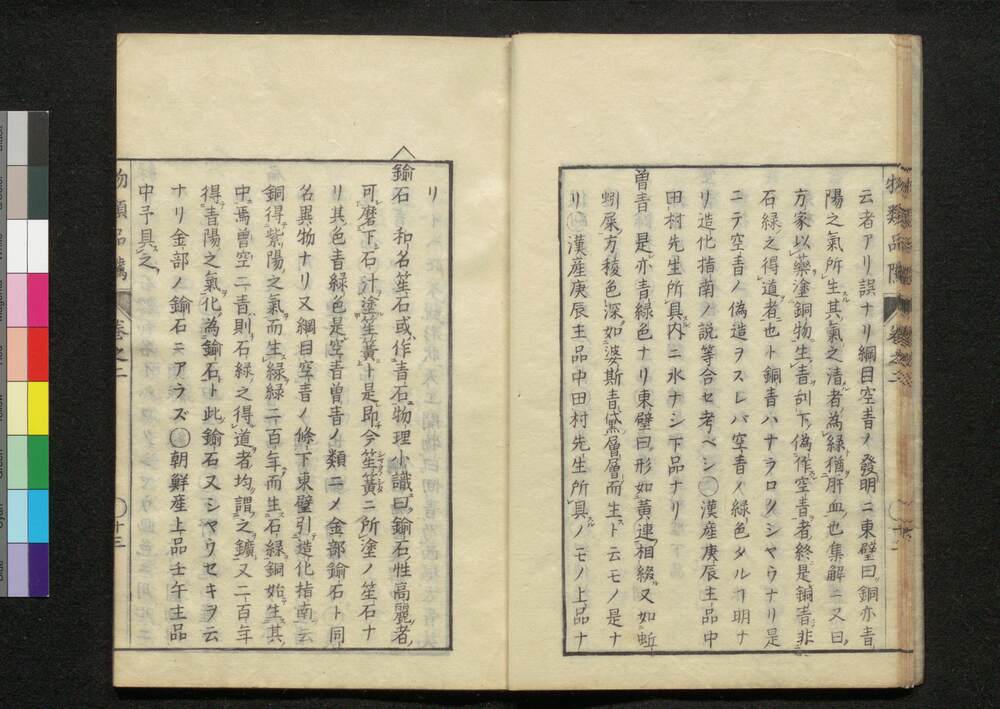 物類品隲 卷之二
云者アリ誤ナリ綱目空青ノ發明ニ東壁曰銅亦青
陽之氣所生其氣之清者為緑猶肝血也集解ニ又曰
方家以藥塗銅物生青刮下偽作空青者終是銅青非
石緑之得道者也ト銅青ハナラロクシヤウナリ是
ニテ空青ノ偽造ヲスレバ空青ノ緑色タルヿ明ナ
リ造化指南ノ説等合セ考ベシ〇漢産庚辰主品中
田村先生所具内ニ水ナシ下品ナリ
曽青 是亦青緑色ナリ東壁曰形如黄連相綴又如蚯
蚓屎方稜色深如婆斯青黛層層而生ト云モノ是ナ
リ〇漢産庚辰主品中田村先生所具ノモノ上品ナ
リ
鍮石 和名笙石或作青石物理小識曰鍮石性高麗者
可磨下石汁塗笙簧ト是即今笙簧ニ所塗ノ笙石ナ
リ其色青緑色是空青曽青ノ類ニノ金部鍮石ト同
名異物ナリ又綱目空青ノ條下東璧引造化指南云
銅得紫陽之氣而生緑緑二百年而生石緑銅始生其
中焉曽空二青則石緑之得道者均謂之鑛又二百年
得青陽之氣化為鍮石ト此鍮石又シヤウセキヲ云
ナリ金部ノ鍮石ニアラズ〇朝鮮産上品壬午主品
中予具之
物類品隲 卷之二 〇十三